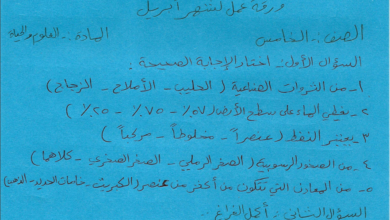 ورقة عمل لشهر أبريل
الصف :- الخامس المادة :- العلوم والحياة
السؤال الأول :- اختار الإجابة الصحيحة :
١- من الثروات الصناعية ( الحليب - الأملاح - الزجاج )
٢- يغطي الماء على سطح الأرض ( ٥٧% - ٧٥% - ٢٥% )
٣- يعتبر النفط ( عنصراً - مخلوطاً - مركباً )
٤- من الصخور الرسوبية ( الصخر الرملي - الصخر الصخري - كلاهما )
٥- من المعادن التي تتكون من أكثر من عنصر ( الكبريت - خامات الحديد - الذهب )
السؤال الثاني :- أكمل الفراغ :-